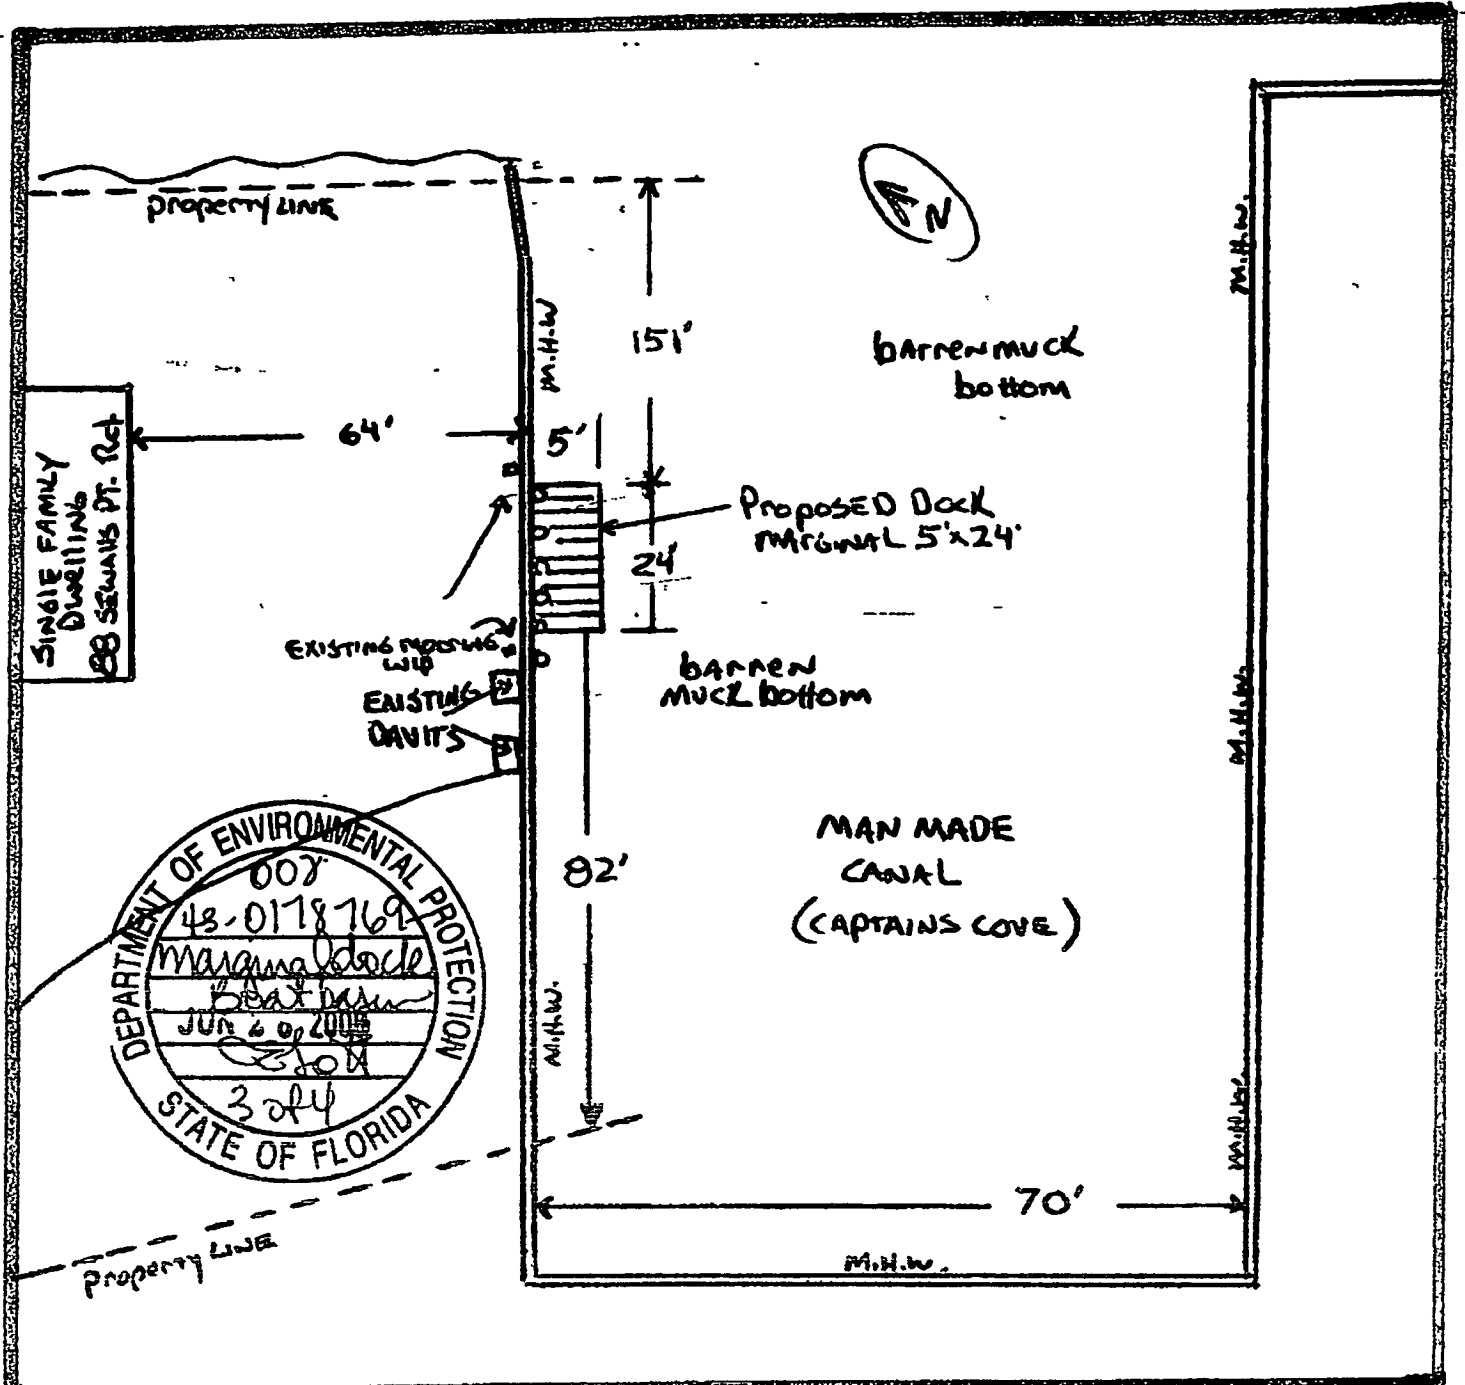 property LINE
N
M.H.W.
M.H.W
151'
barren muck
bottom
64'
5'
SINGLE FAMILY
Dwelling
88 SEWALLS PT. Rd
Proposed Dock
MARGINAL 5'x24'
24'
EXISTING MOORING
EXISTING
DAVITS
barren
MUCK bottom
M.H.W.
MAN MADE
CANAL
(CAPTAINS COVE)
82'
DEPARTMENT OF ENVIRONMENTAL PROTECTION
43-0178769
Marginal dock
Boat basin
JUN 20 2005
3 of 4
STATE OF FLORIDA
M.H.W.
M.H.W.
70'
M.H.W.
property LINE